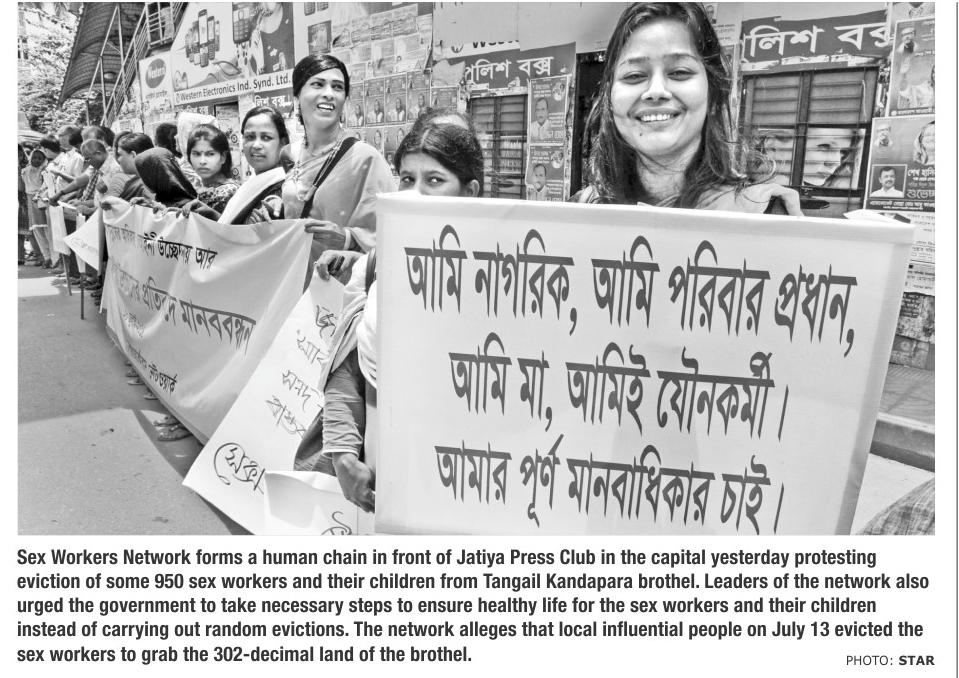 Western Electronics Ind. Synd. Ltd.
পুলিশ বক্স
পুলিশ বক্স
আমি নাগরিক, আমি পরিবার প্রধান,
আমি মা, আমিই যৌনকর্মী।
আমার পূর্ণ মানবাধিকার চাই।
উচ্ছেদ আর
প্রতিবাদে মানববন্ধন
Sex Workers Network forms a human chain in front of Jatiya Press Club in the capital yesterday protesting
eviction of some 950 sex workers and their children from Tangail Kandapara brothel. Leaders of the network also
urged the government to take necessary steps to ensure healthy life for the sex workers and their children
instead of carrying out random evictions. The network alleges that local influential people on July 13 evicted the
sex workers to grab the 302-decimal land of the brothel.
PHOTO: STAR